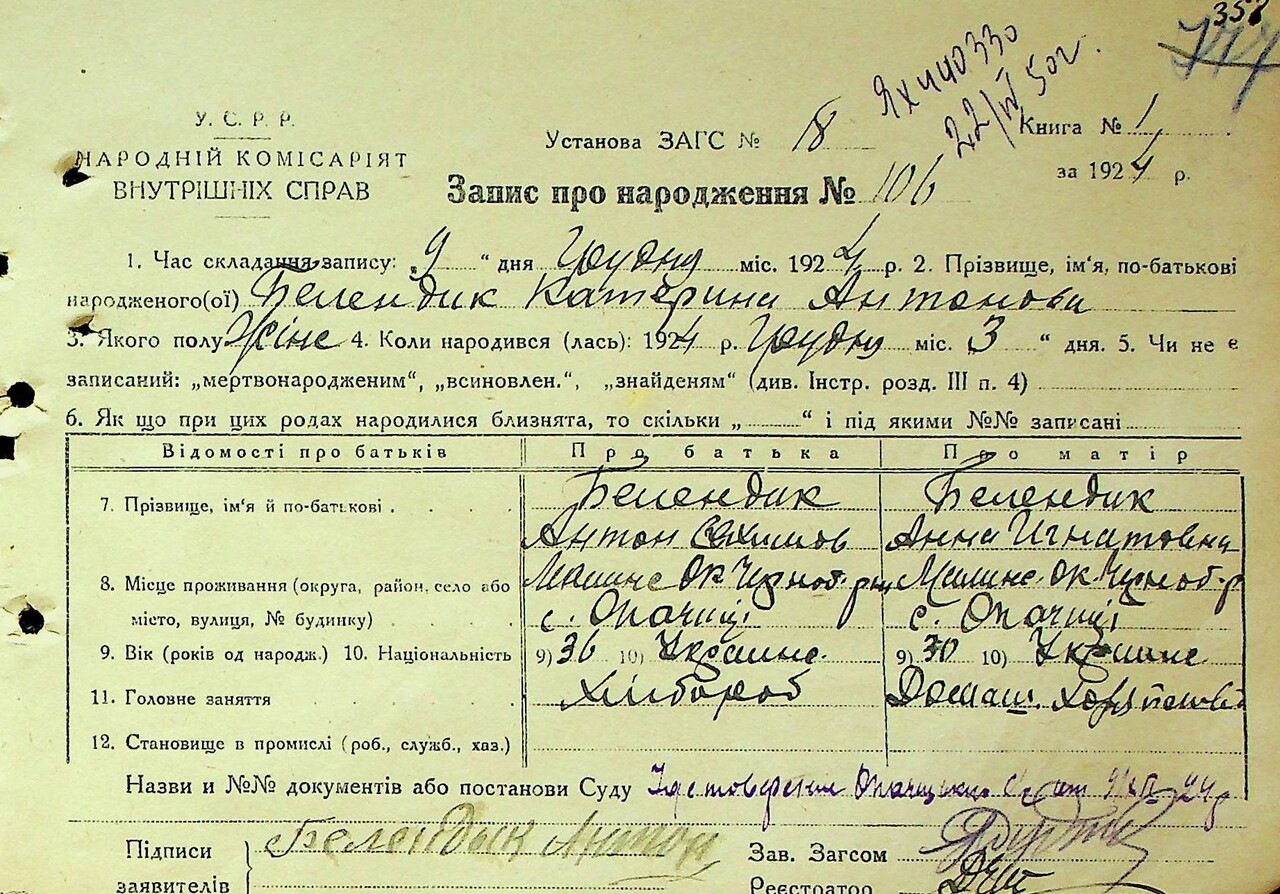 358
ЯХ 440330
22/VI 50г.
У. С. Р. Р.
НАРОДНІЙ КОМІСАРІЯТ
ВНУТРІШНІХ СПРАВ
Установа ЗАГС № 18 Книга № 1
Запис про народження № 106 за 1924 р.
1. Час складання запису: „9 “ дня Грудня міс. 1924 р. 2. Прізвище, ім'я, по-батькові
народженого(ої) Белендик Катерина Антонова
3. Якого полу Жіне 4. Коли народився (лась): 1924 р. Грудня міс. 3 “ дня. 5. Чи не є
записаний: „мертвонародженим“, „всиновлен.“, „знайденям“ (див. Інстр. розд. III п. 4)
6. Як що при цих родах народилися близнята, то скільки „ “ і під якими №№ записані
Відомості про батьків Про батька Про матір
7. Прізвище, ім'я й по-батькові Белендик Белендик
Антон Анна Игнатовна
8. Місце проживання (округа, район, село або Малинс. Ок. Чорноб. р Малинс. Ок. Чорноб. р
місто, вулиця, № будинку) с. Опачиці с. Опачиці
9. Вік (років од народж.) 10. Національність 9) 36 10) Украинс. 9) 30 10) Украинс
11. Головне заняття Хлібороб Домаш.
12. Становище в промислі (роб., служб., хаз.)
Назви и №№ документів або постанови Суду
Підписи Белендык Антон Зав. Загсом
заявителів Реєстратор